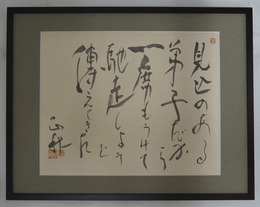 見込のある
弟子だから
一席もうけて
馳走しようと
傳えてきた